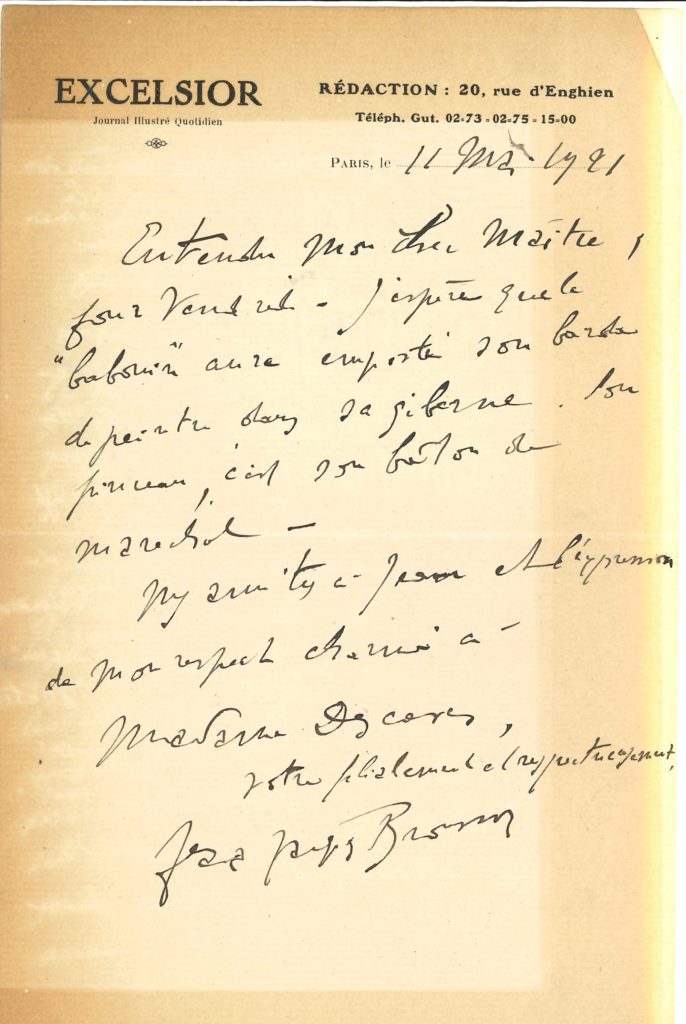 EXCELSIOR
Journal Illustré Quotidien
RÉDACTION : 20, rue d'Enghien
Téléph. Gut. 02-73 - 02-75 - 15-00
PARIS, le 11 Mai 1921
Entendu mon cher Maître,
pour Vendredi – J'espère que le
"babouin" aura emporté son barda
de peintre dans sa giberne. Son
pinceau, c'est son bâton de
maréchal –
My amitys à Jean et l'expression
de mon respect charmé à
Madame Descaves,
votre filialement et respectueusement,
Jean Jacques Brousson